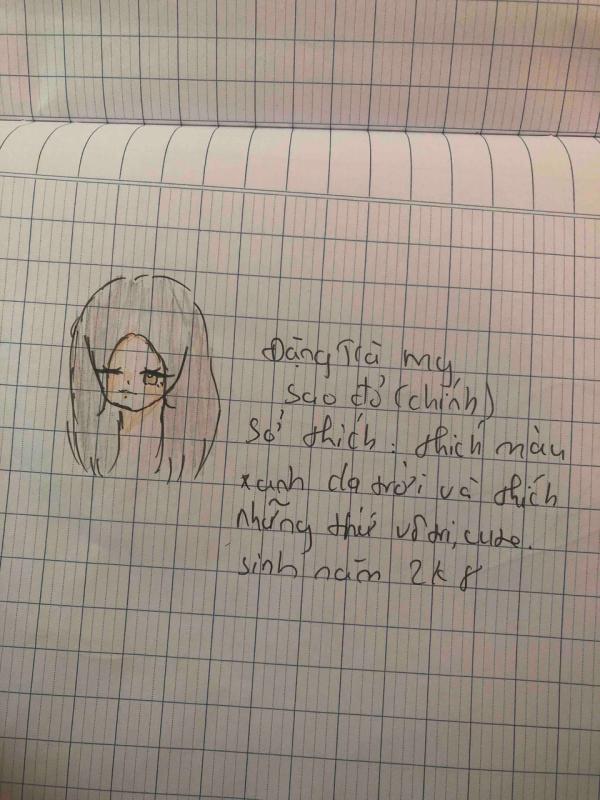 Đặng Trà My
Sao đỏ (chính)
Sở thích: thích màu
xanh da trời và thích
những thứ vô tri, cute.
sinh năm 2k8